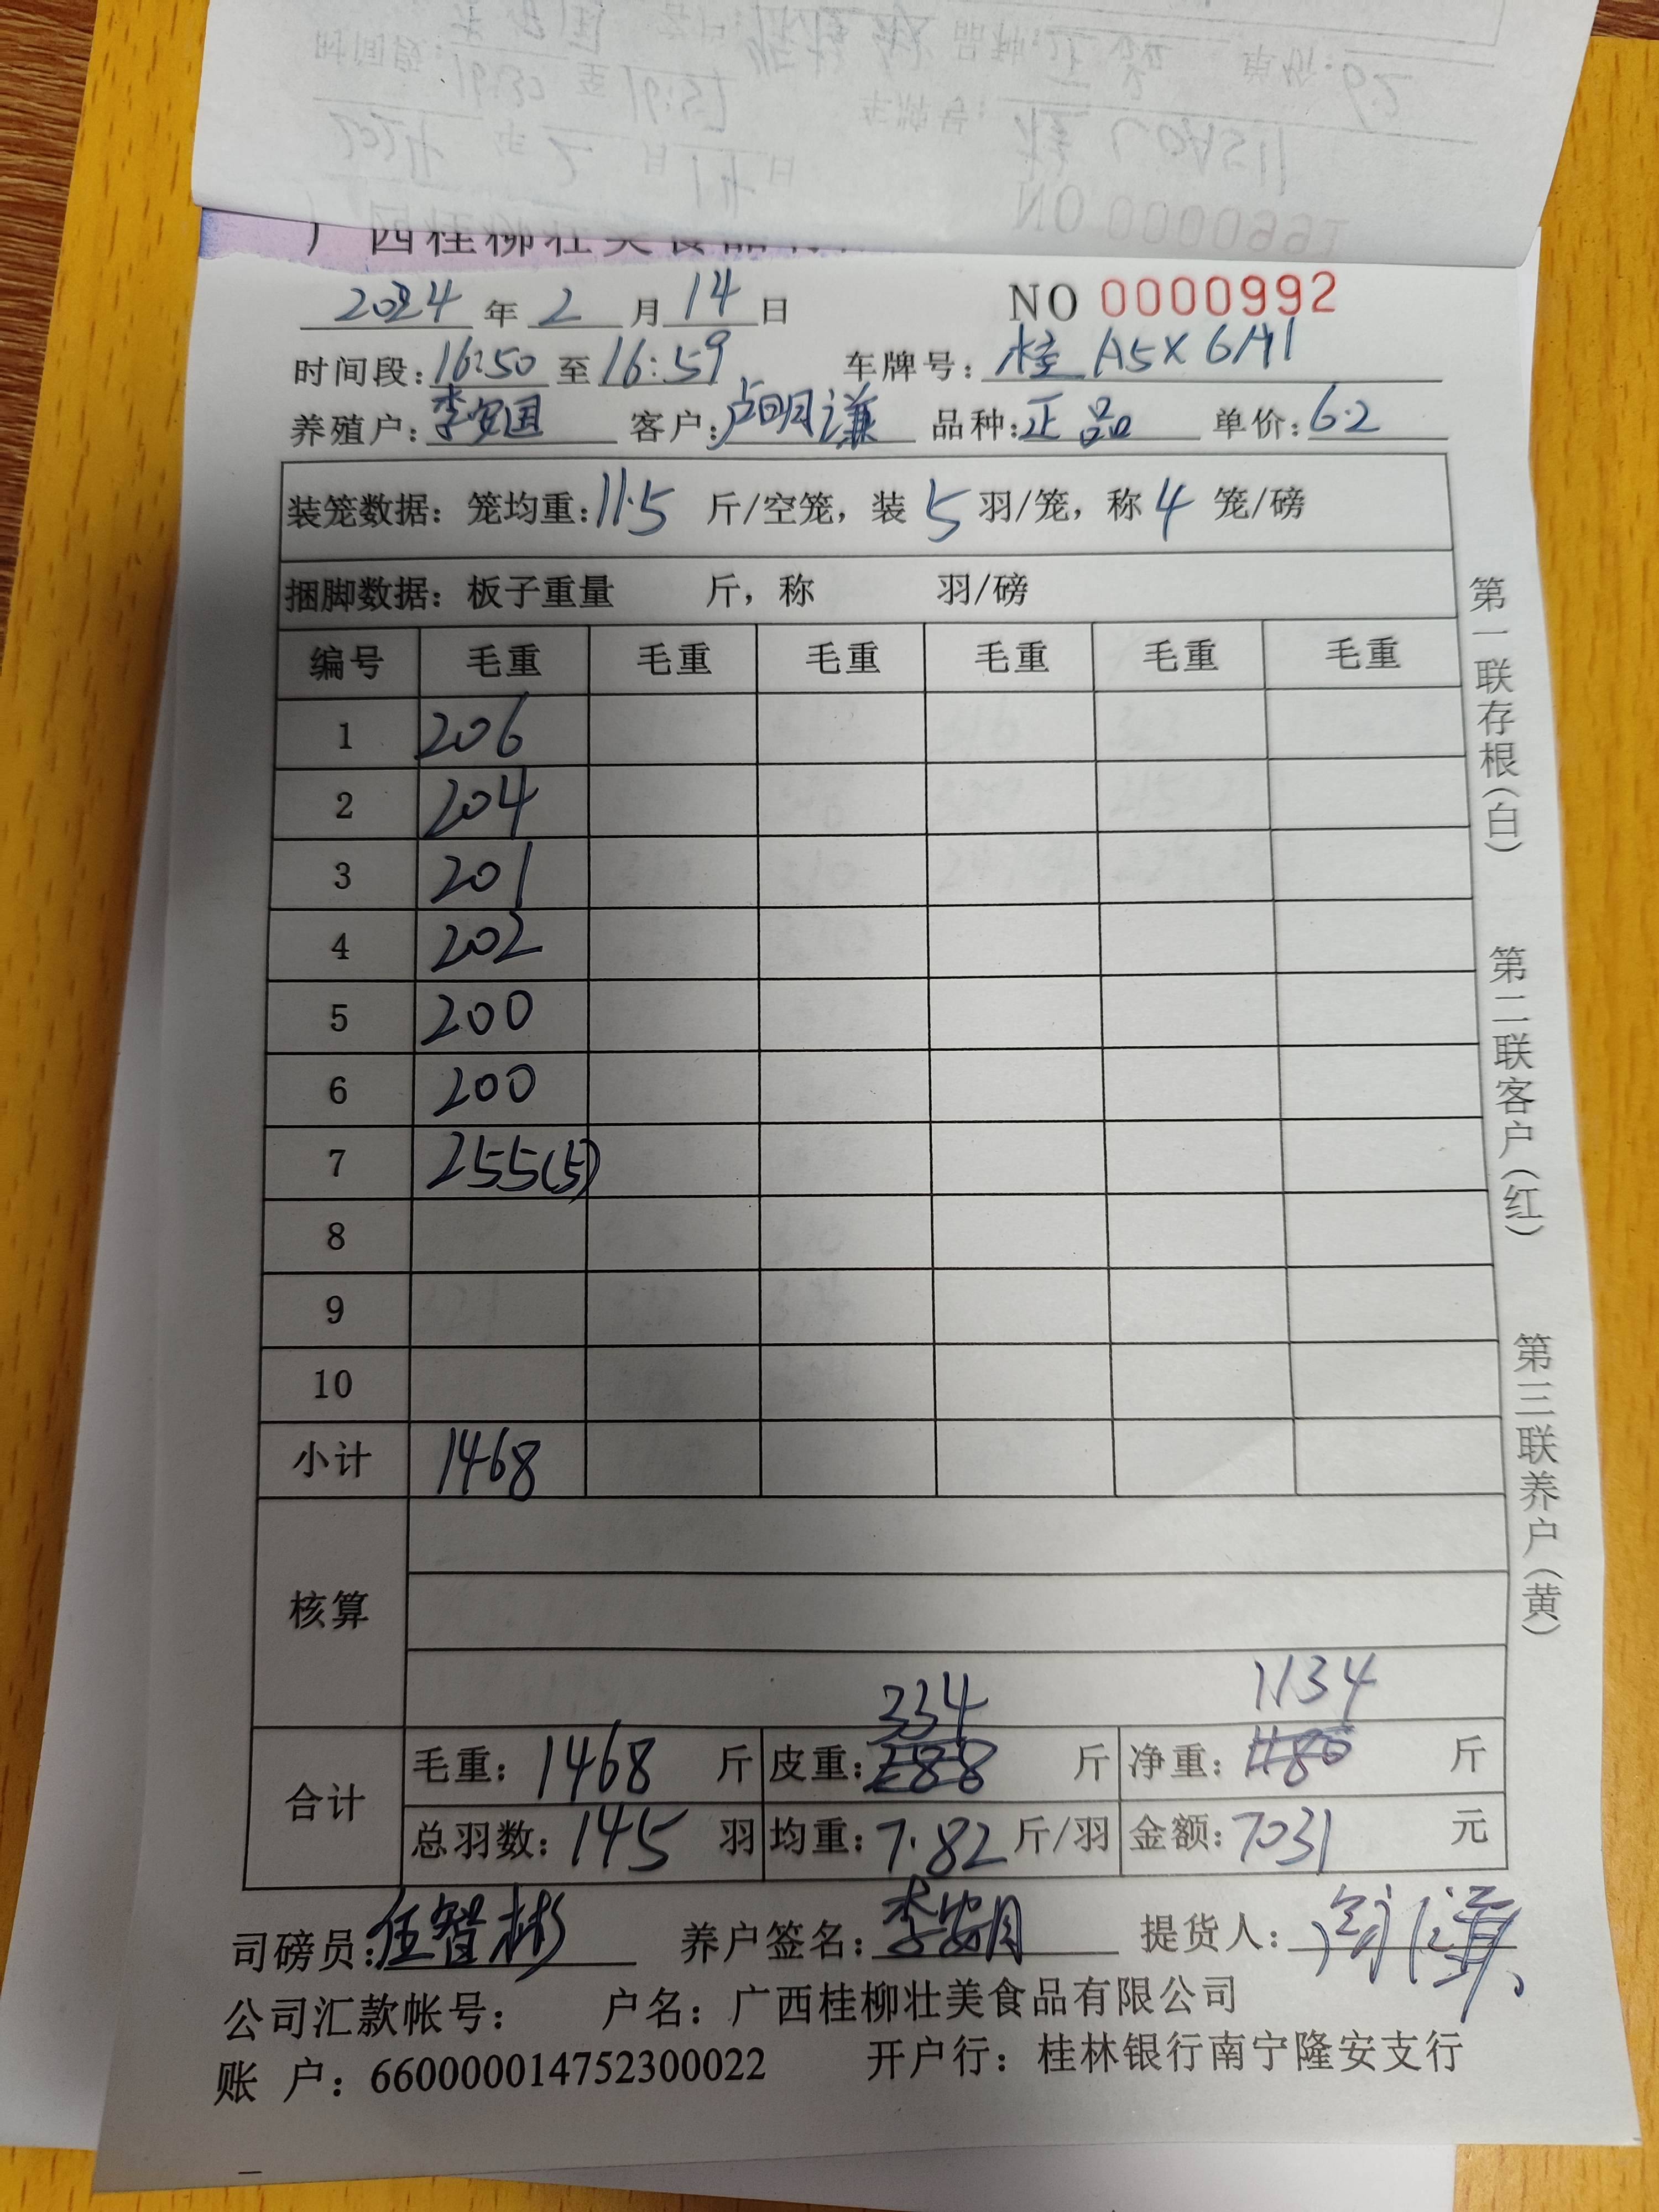 广西桂柳壮美食品有
2024 年 2 月 14 日 NO 0000992
时间段:16:50 至 16:59 车牌号: 桂 A5X6A1
养殖户:李安国 客户:卢明谦 品种:正品 单价:6.2
装笼数据: 笼均重:11.5 斤/空笼, 装 5 羽/笼, 称 4 笼/磅
捆脚数据: 板子重量 斤, 称 羽/磅
编号 毛重 毛重 毛重 毛重 毛重 毛重
1 206
2 204
3 201
4 202
5 200
6 200
7 255(5)
8
9
10
小计 1468
核算
334 1134
合计 毛重: 1468 斤 皮重: 288 斤 净重: 1180 斤
总羽数: 145 羽 均重: 7.82 斤/羽 金额: 7031 元
司磅员:伍智彬 养户签名: 李安 提货人:
公司汇款帐号: 户名: 广西桂柳壮美食品有限公司
账 户: 660000014752300022 开户行: 桂林银行南宁隆安支行
第一联存根(白) 第二联客户(红) 第三联养户(黄)